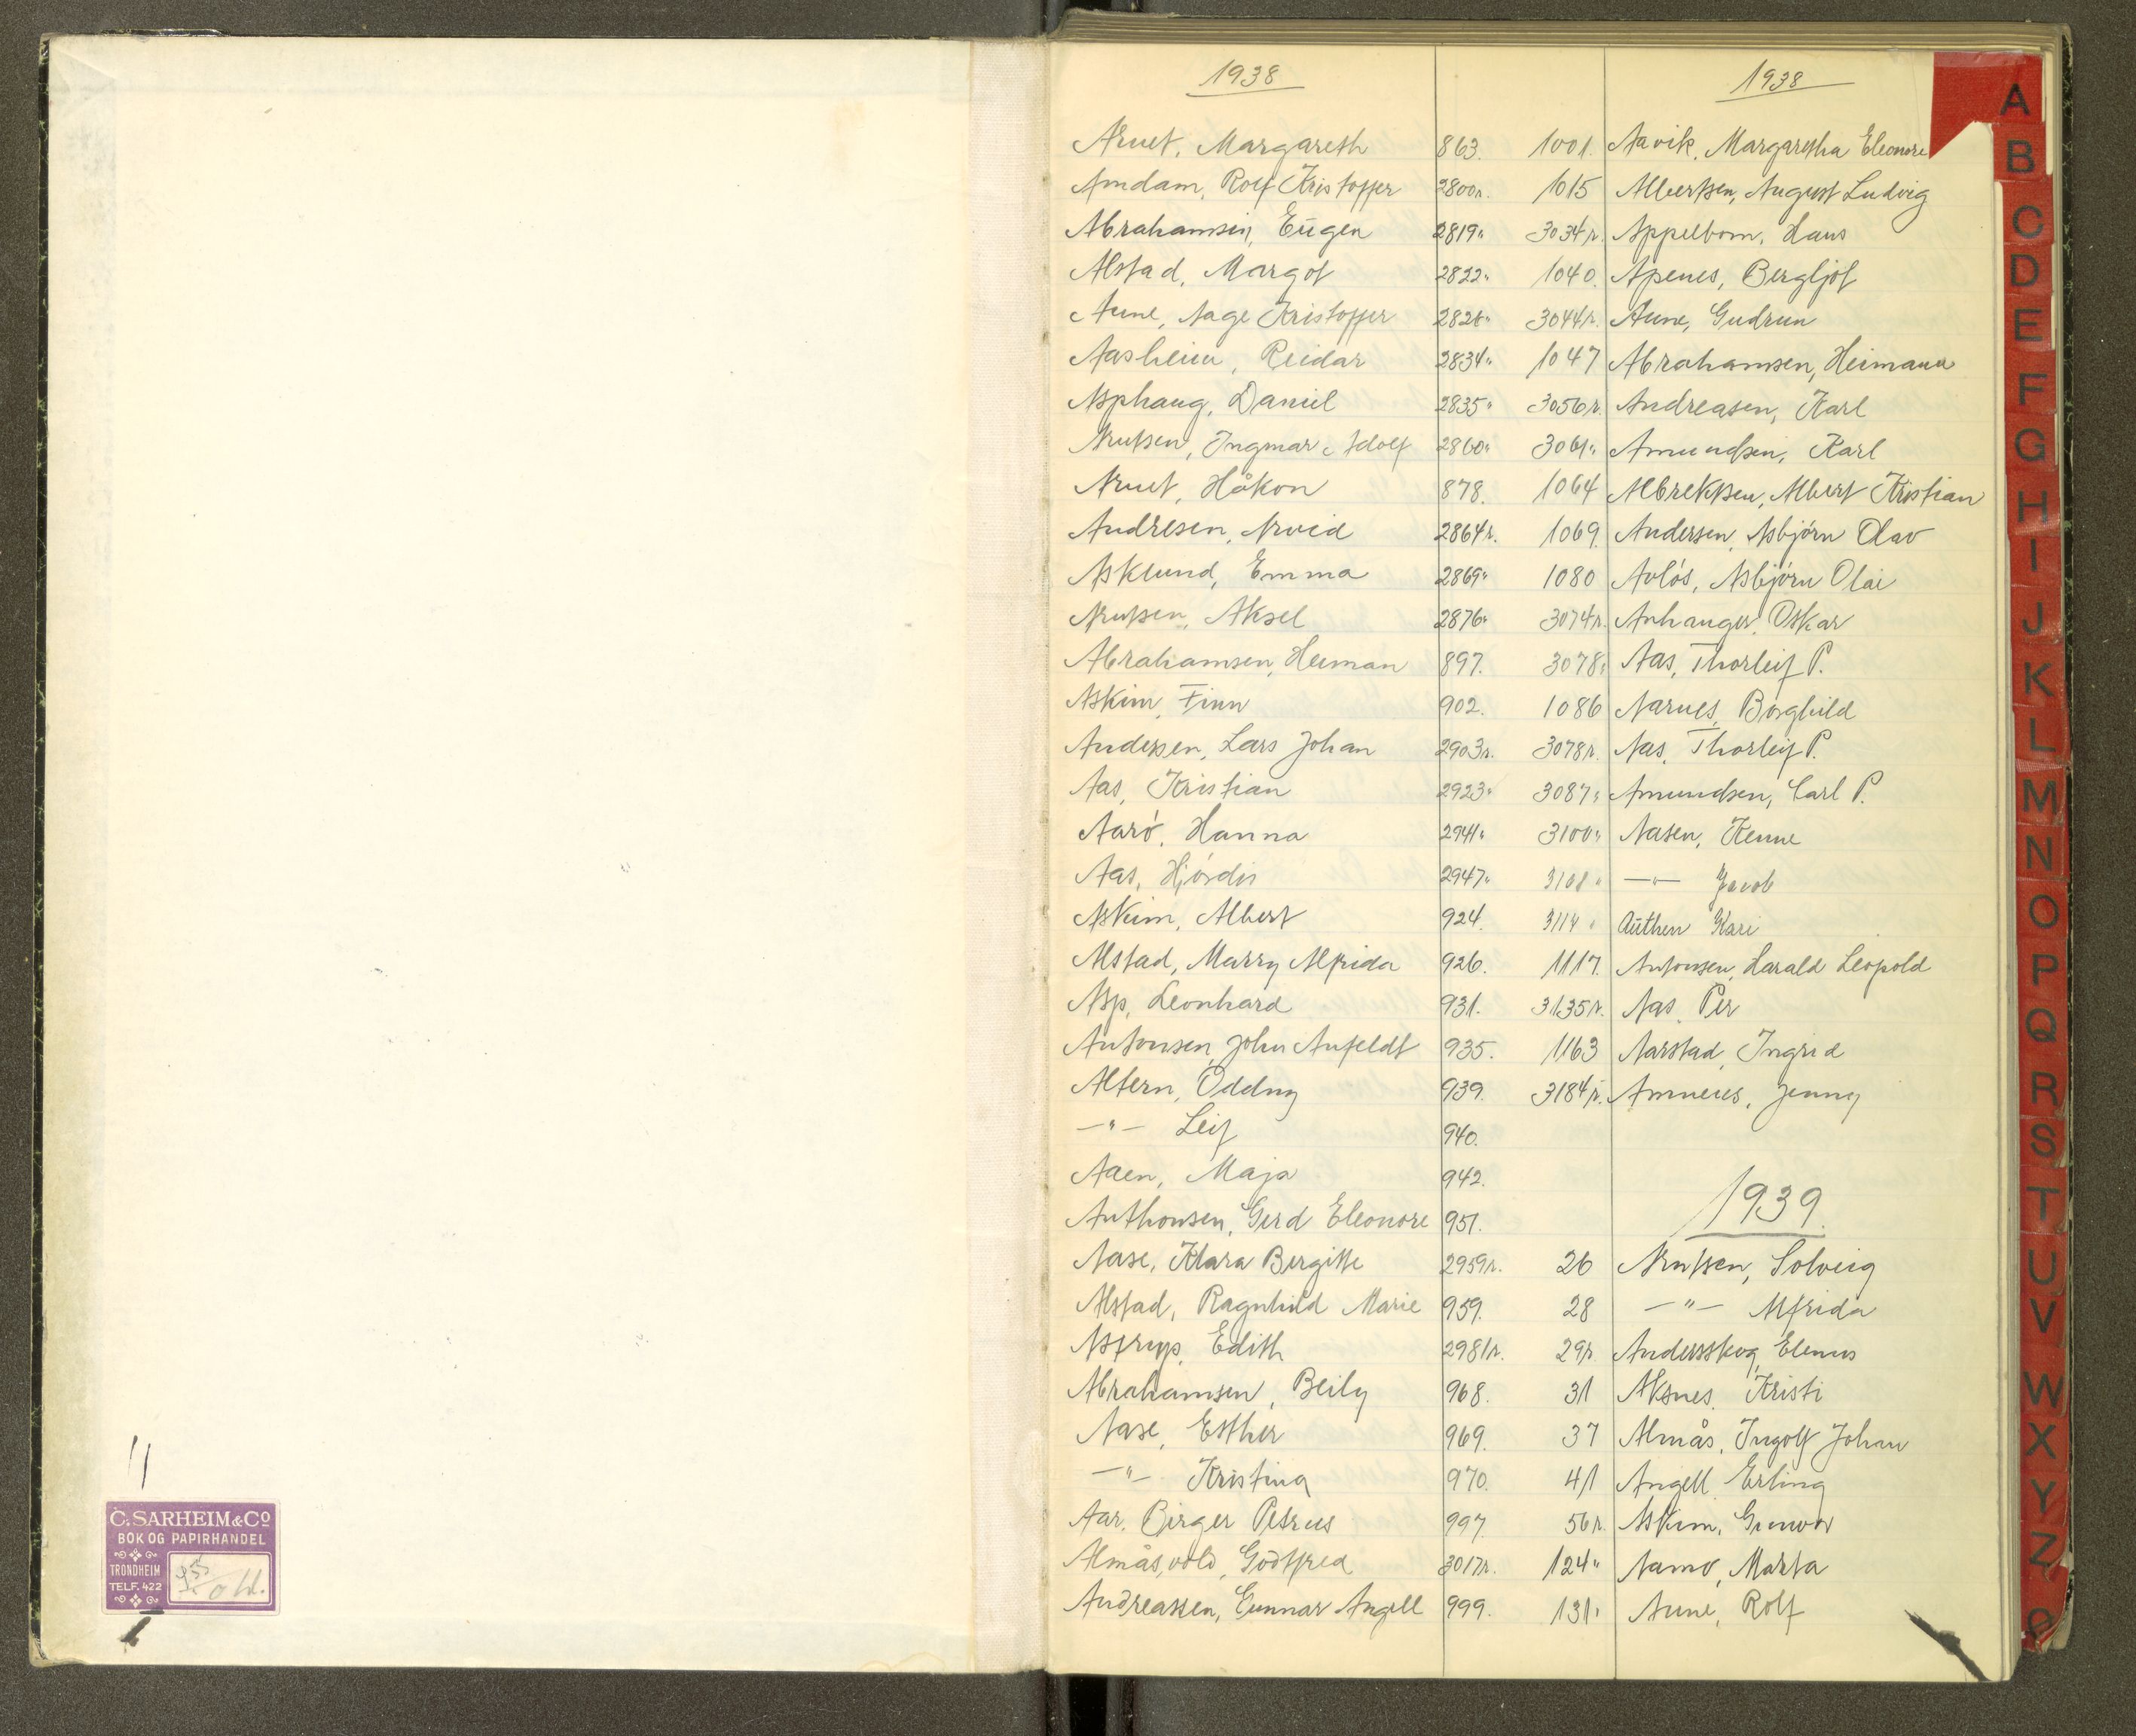 1938
Arnet, Margareth 863.
Amdam, Rolf Kristoffer 2800r.
Abrahamsen, Eugen 2819"
Alstad, Margot 2822"
Aune, Aage Kristoffer 2826"
Aasheim, Reidar 2834"
Asphaug, Daniel 2835"
Arntsen, Ingmar Adolf 2860"
Arnet, Håkon 878.
Andresen, Arvid 2864r.
Asklund, Emma 2869"
Arntsen, Aksel 2876"
Abrahamsen, Herman 897.
Askim, Finn 902.
Andersen, Lars Johan 2903r.
Aas, Kristian 2923"
Aarø, Hanna 2941"
Aas, Hjørdis 2947"
Askim, Albert 924.
Alstad, Marry Alfrida 926.
Asp, Leonhard 931.
Antonsen, John Anfeldt 935.
Altern, Oddny 939.
—"— Leif 940.
Aaen, Maja 942.
Anthonsen, Gerd Eleonore 951.
Aase, Klara Bergitte 2959r.
Alstad, Ragnhild Marie 959.
Astrup, Edith 2981r.
Abrahamsen, Beily 968.
Aase, Esther 969.
—"— Kristina 970.
Aar, Birger Petrus 997.
Almåsvold, Godtfred 3017r.
Andreassen, Gunnar Angell 999.
1938
1001. Aavik, Margaretha Eleonore
1015 Albertsen, August Ludvig
3034r. Appelbom, Hans
1040. Apenes, Bergljot
3044r. Aune, Gudrun
1047 Abrahamsen, Heimann
3056r. Andreasen, Karl
3061" Amundsen, Karl
1064 Albrektsen, Albert Kristian
1069. Andersen, Asbjørn Olav
1080 Avløs, Asbjørn Olai
3074r. Anhanger, Oskar
3078" Aas, Thorleif P.
1086 Aarnes, Borghild
3078r. Aas, Thorleif P.
3087" Amundsen, Carl P.
3100" Aasen, Kenne
3101" —"— Jacob
3114" Authen Kari
1117. Antonsen, Harald Leopold
3135r. Aas, Per
1163 Aarstad, Ingrid
3184r. Amnéus, Jenny
1939.
26 Arntsen, Solveig
28 —"— Alfrida
29r. Andersskog, Elenus
31 Aksnes, Kristi
37 Almås, Ingolf Johan
41 Angell, Erling
56r. Askim, Gunvor
124" Aamo, Marta
131" Aune, Rolf
A
B
C
D
E
F
G
H
I
J
K
L
M
N
O
P
Q
R
S
T
U
V
W
X
Y
Z
Ø
C. SARHEIM & Co
BOK OG PAPIRHANDEL
TRONDHEIM
TELF. 422